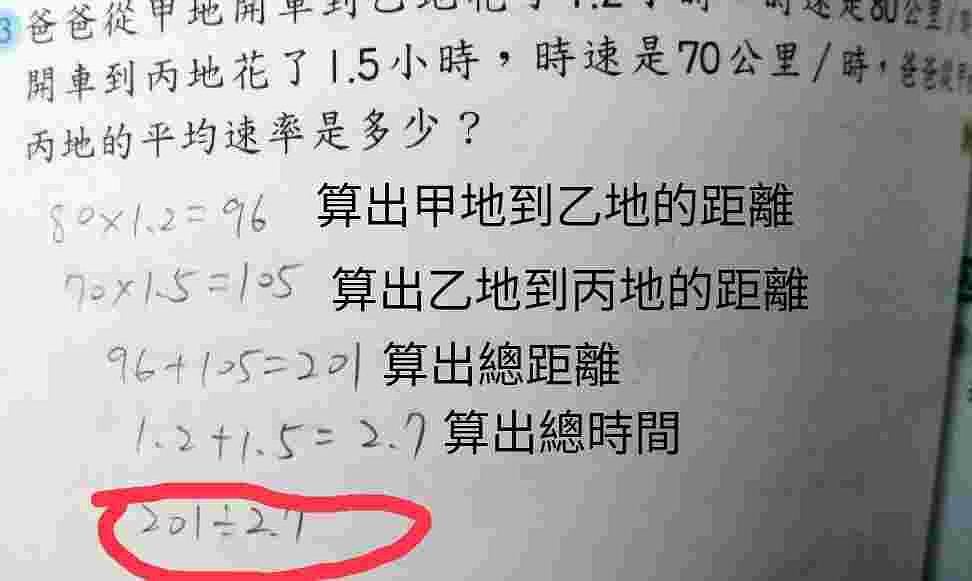 3 爸爸從甲地開車到乙地花了1.2小時,時速是80公里/
開車到丙地花了1.5小時,時速是70公里/時,爸爸從甲
丙地的平均速率是多少?
80×1.2=96 算出甲地到乙地的距離
70×1.5=105 算出乙地到丙地的距離
96+105=201 算出總距離
1.2+1.5=2.7 算出總時間
201÷2.7